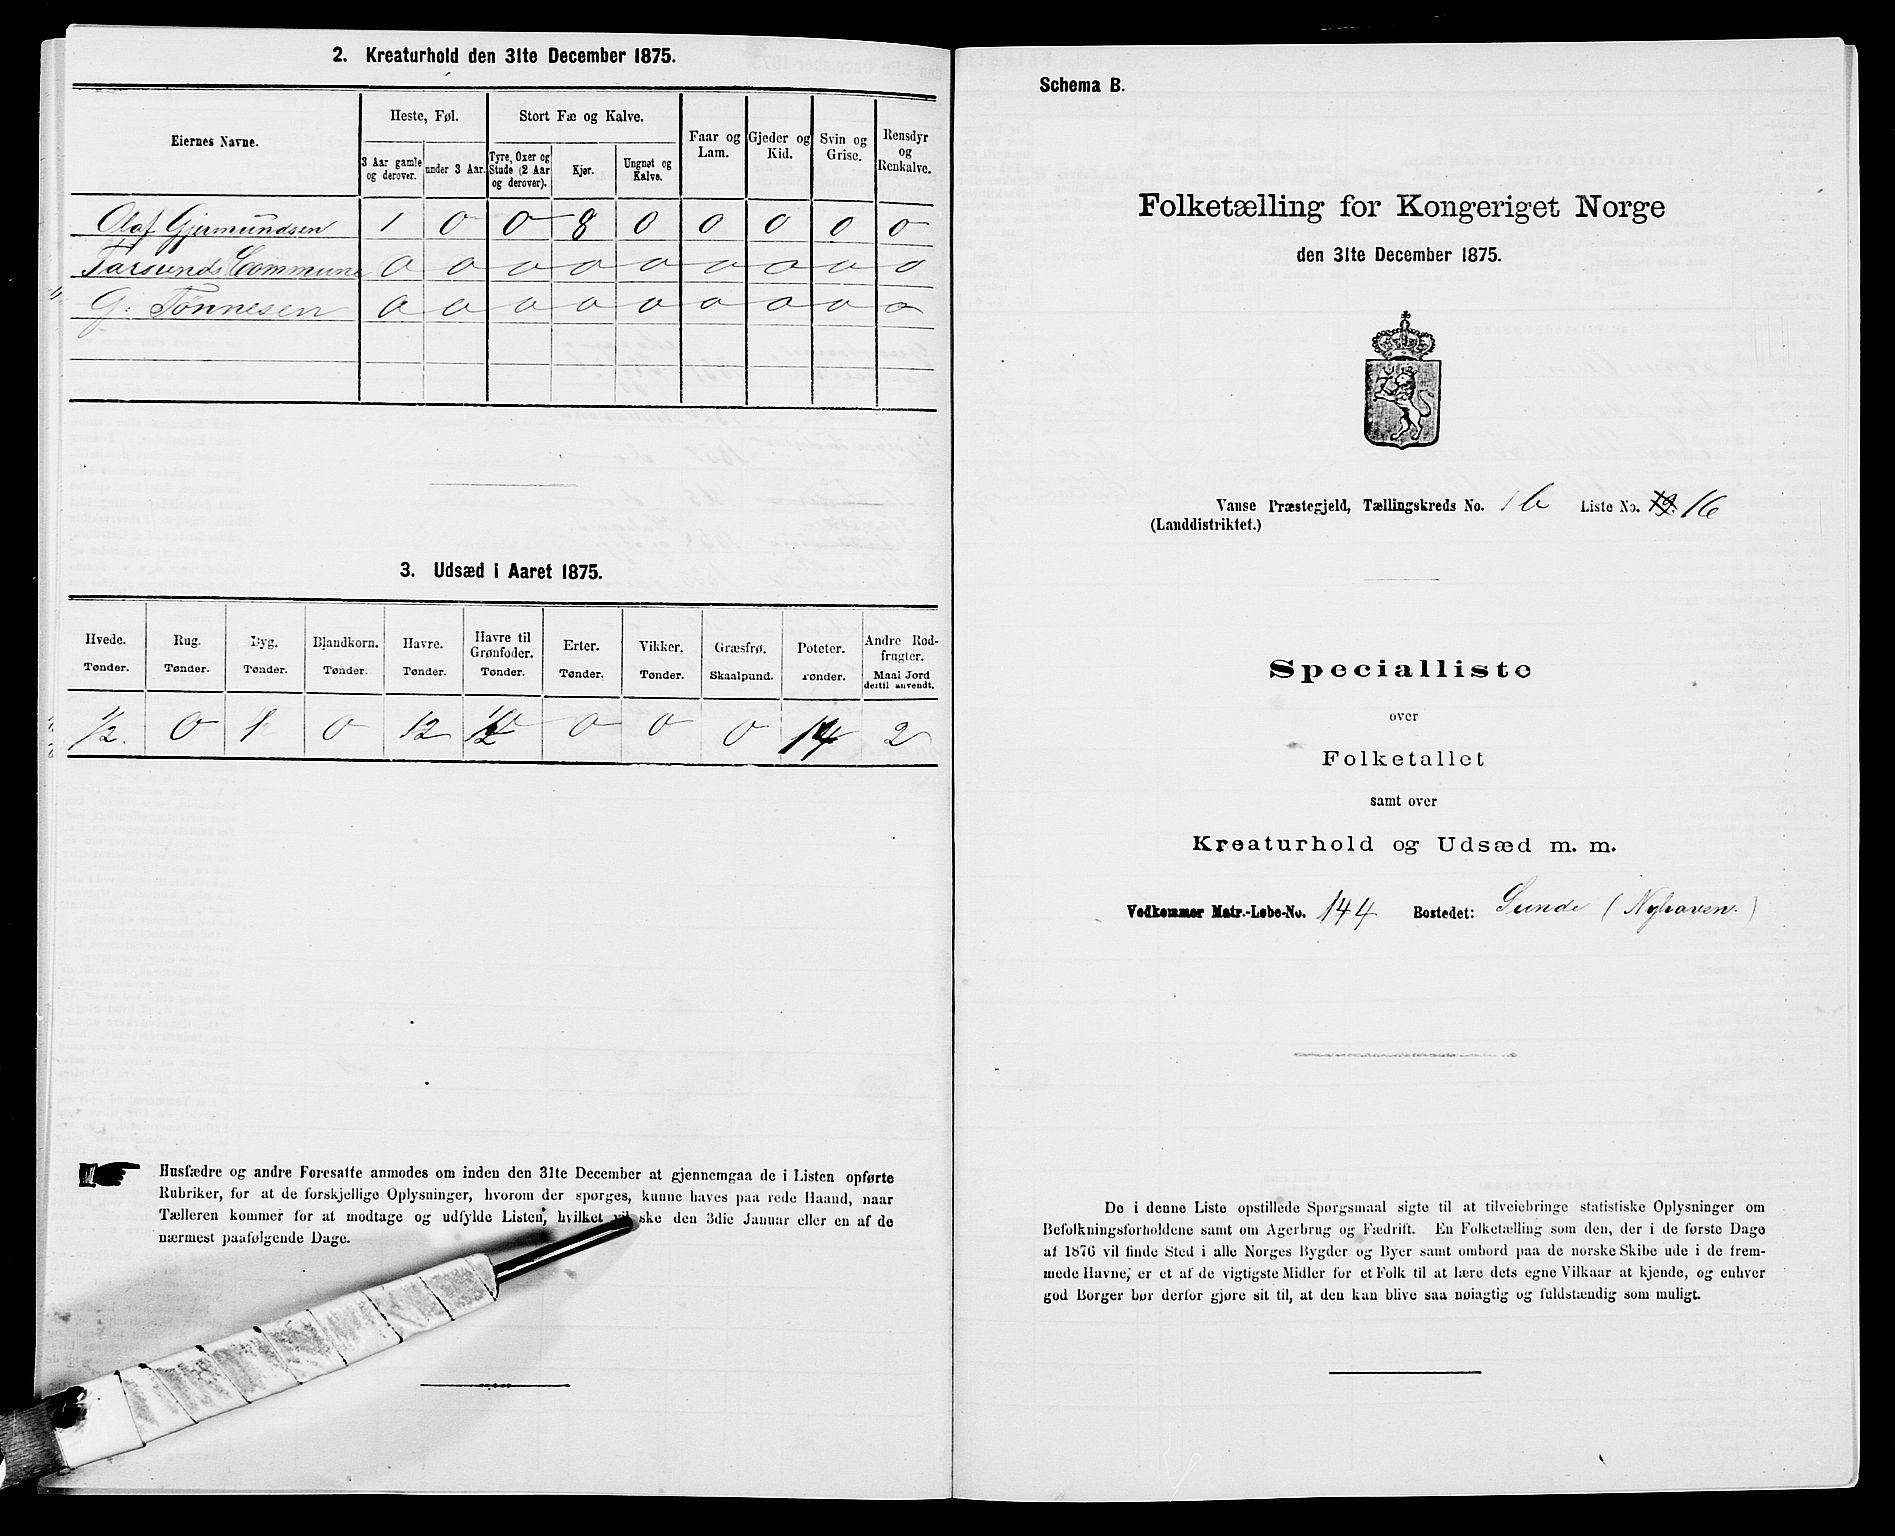 2. Kreaturhold den 31te December 1875.
Eiernes Navne.
Heste, Føl.
Stort Fæ og Kalve.
Faar og Lam.
Gjeder og Kid.
Svin og Grise.
Rensdyr og Renkalve.
3 Aar gamle og derover.
under 3 Aar.
Tyre, Oxer og Stude (2 Aar og derover).
Kjør.
Ungnøt og Kalve.
Olaf Gjermundsen 1 0 0 8 0 0 0 0 0
Farsunds Commune 0 0 0 0 0 0 0 0 0
G. Tønnesen 0 0 0 0 0 0 0 0 0
3. Udsæd i Aaret 1875.
Hvede. Tønder.
Rug. Tønder.
Byg. Tønder.
Blandkorn. Tønder.
Havre. Tønder.
Havre til Grønfoder. Tønder.
Erter. Tønder.
Vikker. Tønder.
Græsfrø. Skaalpund.
Poteter. Tønder.
Andre Rodfrugter. Maal Jord dertil anvendt.
1/2 0 1 0 12 1/2 0 0 0 14 2
Husfædre og andre Foresatte anmodes om inden den 31te December at gjennemgaa de i Listen opførte
Rubriker, for at de forskjellige Oplysninger, hvorom der spørges, kunne haves paa rede Haand, naar
Tælleren kommer for at modtage og udfylde Listen, hvilket vil ske den 3die Januar eller en af de
nærmest paafølgende Dage.
Schema B.
Folketælling for Kongeriget Norge
den 31te December 1875.
Vanse Præstegjeld, Tællingskreds No. 1b Liste No. 19. 16
(Landdistriktet.)
Specialliste
over
Folketallet
samt over
Kreaturhold og Udsæd m. m.
Vedkommer Matr.-Løbe-No. 144 Bostedet: Sunde (Nyhaven.)
De i denne Liste opstillede Spørgsmaal sigte til at tilveiebringe statistiske Oplysninger om
Befolkningsforholdene samt om Agerbrug og Fædrift. En Folketælling som den, der i de første Dage
af 1876 vil finde Sted i alle Norges Bygder og Byer samt ombord paa de norske Skibe ude i de frem-
mede Havne, er et af de vigtigste Midler for et Folk til at lære dets egne Vilkaar at kjende, og enhver
god Borger bør derfor gjøre sit til, at den kan blive saa nøiagtig og fuldstændig som muligt.